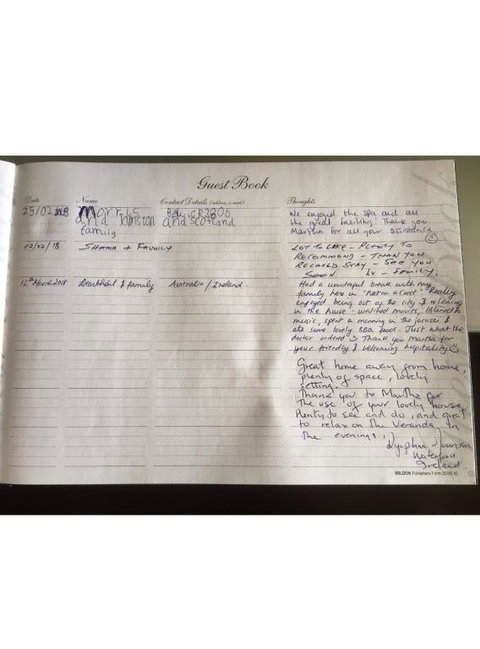 Guest Book
Date Name Contact Details (address, e-mail) Thoughts
25/02/18 Morris and family and Scotland
We enjoyed the spa and all
the great facility. Thank you
Martha for all your assistance
02/03/18 Shama + Family
LOT TO LIKE - PLENTY TO
RECOMMEND - THANK YOU
RELAXED STAY - SEE YOU
SOON Family.
12th March 2018 & family Australia / Ireland
Had a wonderful break with my
family here in Really
enjoyed being out of the city & relaxing
in the house - watched movies, listened to
music, spent a morning in the jacuzzi &
ate some lovely BBQ food. Just what the
doctor ordered Thank you Martha for
your friendly & welcoming hospitality
Great home away from home,
plenty of space, lovely
setting.
Thank you to Martha for
the use of your lovely house
Plenty to see and do, and great
to relax on the Veranda in
the evenings,
Waterford
Ireland
WILDON Publishers Form